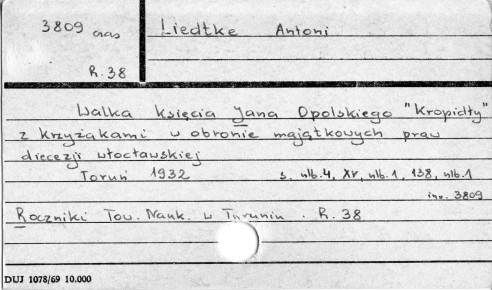 3809 cras
Liedtke Antoni
R. 38
Walka Księcia Jana Opolskiego "Kropidły"
z Krzyżakami w obronie majątkowych praw
diecezji włocławskiej
Toruń 1932 s. nlb. 4, XV, nlb. 1, 138, nlb. 1
inw. 3809
Roczniki Tow. Nauk. w Toruniu. R. 38
DUJ 1078/69 10.000